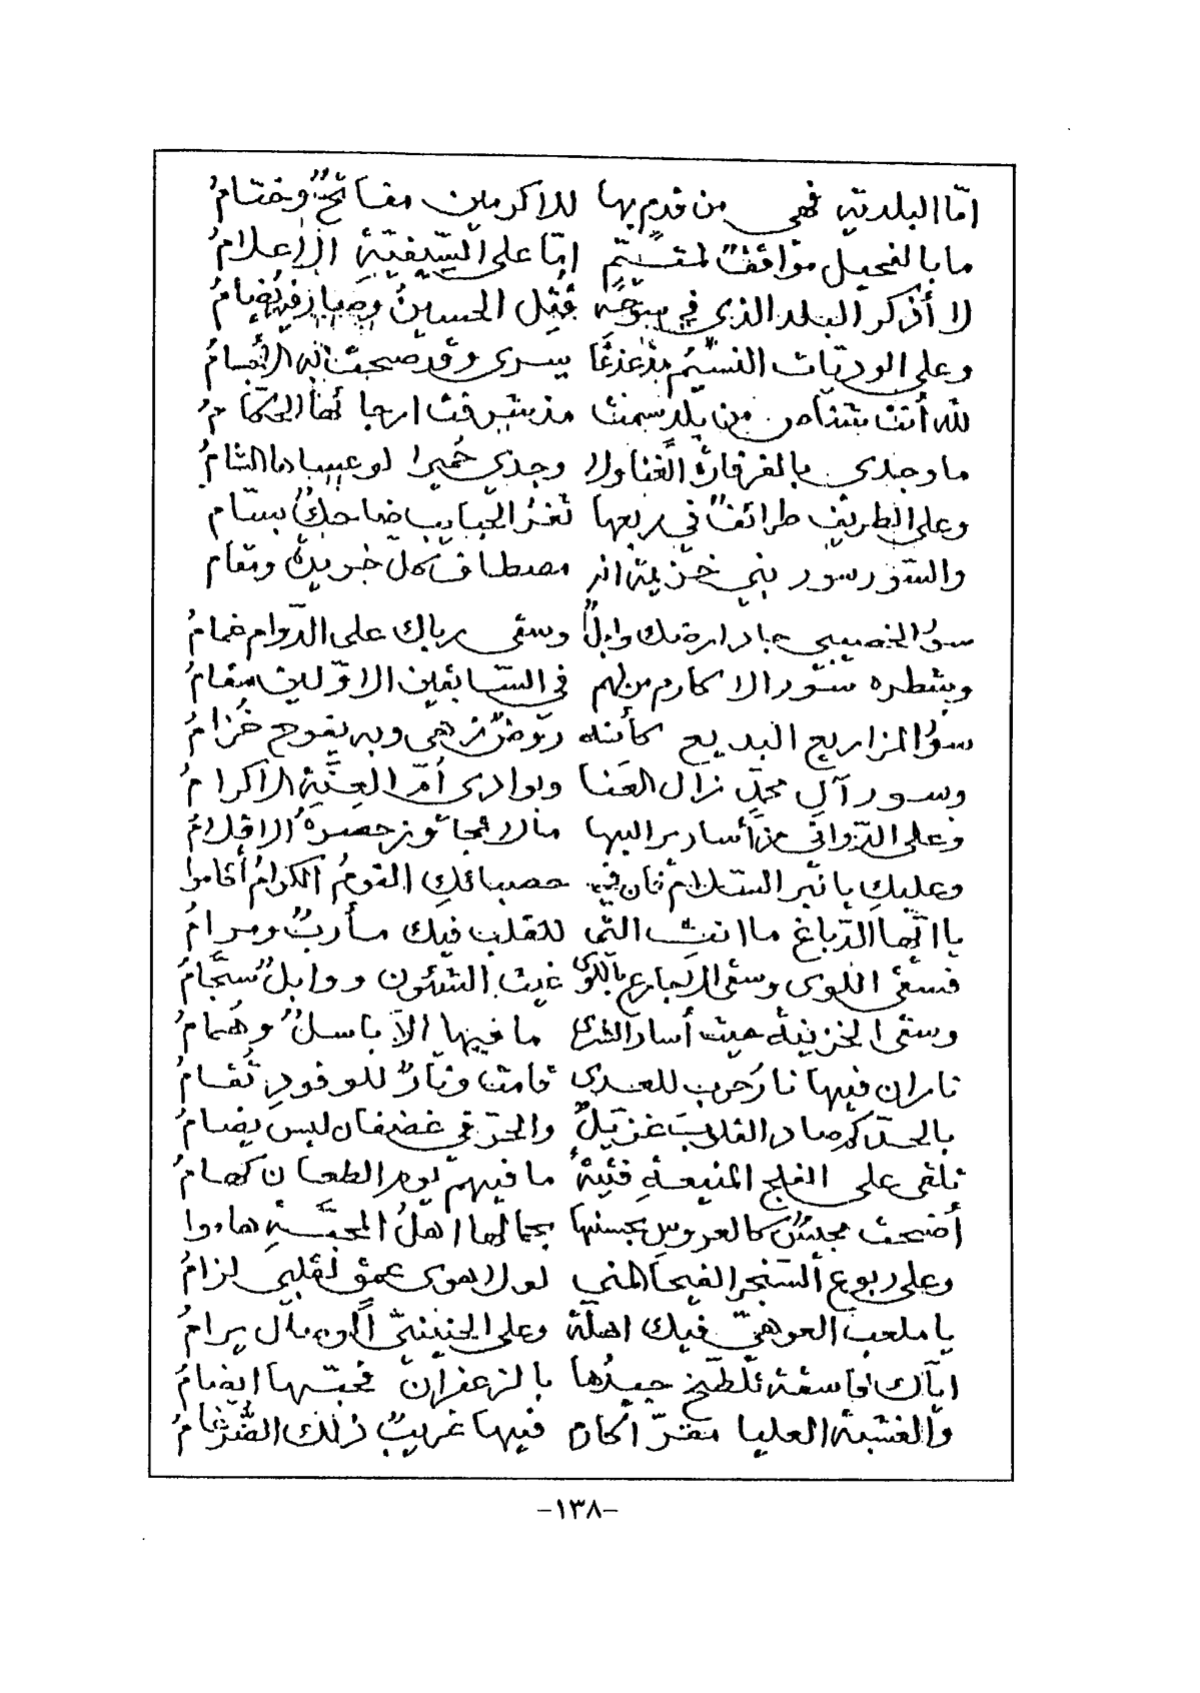 امّا البلدية فهي من قدم بها للاكرمين مفاتحٌ وختامُ
ما بالفحيل مواقفٌ لمتيّم امّا على السّيفيّةِ الاعلامُ
لا أذكر البلد الذي في سوحه قتل الحسينُ وصار فيه يضامُ
وعلى الوديّات النسيمُ يسرى وقد صحت به الأجسامُ
لله أنت من بلد سمت مذ شرفت ارجاءها الحكّامُ
ما وجدى بالفرفارة الغنا ولا وجدي لو عبيا هام الشامُ
وعلى الطريف طرائفٌ في ربعها ثغرُ الحبايب ضاحكٌ بسّام
والسّور سور بني خزيمة انه مصطاف كل خريدةٍ ومقام
سورُ الخصيبي جاد دارة مك وابلٌ وسقى رباك على الدّوام غمامُ
وبشطره سور الاكارم من لهم في السّابقين الاوّلين مقامُ
سورُ المزاريع البديع كأنه روضٌ زهى وبه يفوح خُزامُ
وسور آلِ محمّدٍ نزال العَنا وبوادى أمّ الجِنّيةِ الاكرامُ
وعلى الزّوافي من أساد مراليها مالا تجاوز حصرهُ الاقلامُ
وعليكِ يا نبّر السّلام فان في حصبائكِ القومُ الكرامُ أقاموا
يا ايّها الدّباغ ما انت التي للقلب فيك مأربٌ ومرامُ
فسقى اللوى وسقى الاجارع باللوى غيث الشئون ووابلٌ سجّامُ
وسقى الخزينة حيث أساد الشرى ما فيها الاّ باسلٌ وهُمامُ
ناران فيها نارُ حرب للعدى قامت ونارٌ للوفودِ تُقامُ
بالحدّ كم صاد القلوبَ غزيّلٌ والحرّ في غضفان ليس يضامُ
تلقى على الفلج المنيعةِ فئيةٌ ما فيهم يوم الطعان كَهامُ
أضحت مجيسٌ كالعروس بحسنها بجمالها اهلُ المحبّةِ هاموا
وعلى ربوع السّنجر الفيحا المنى لولا هوى عمق لقلبي لزامُ
يا ملعب العوهيّ فيك اهلّة وعلى الحنينيّ الاون مال يرامُ
ايّاك فاسقة تلطّخ جيدُها بالزعفران فحبّها ايضامُ
والغشبة العليا مقرّ اكارم فيها غريبٌ ذلك الضّرغامُ
-١٣٨-